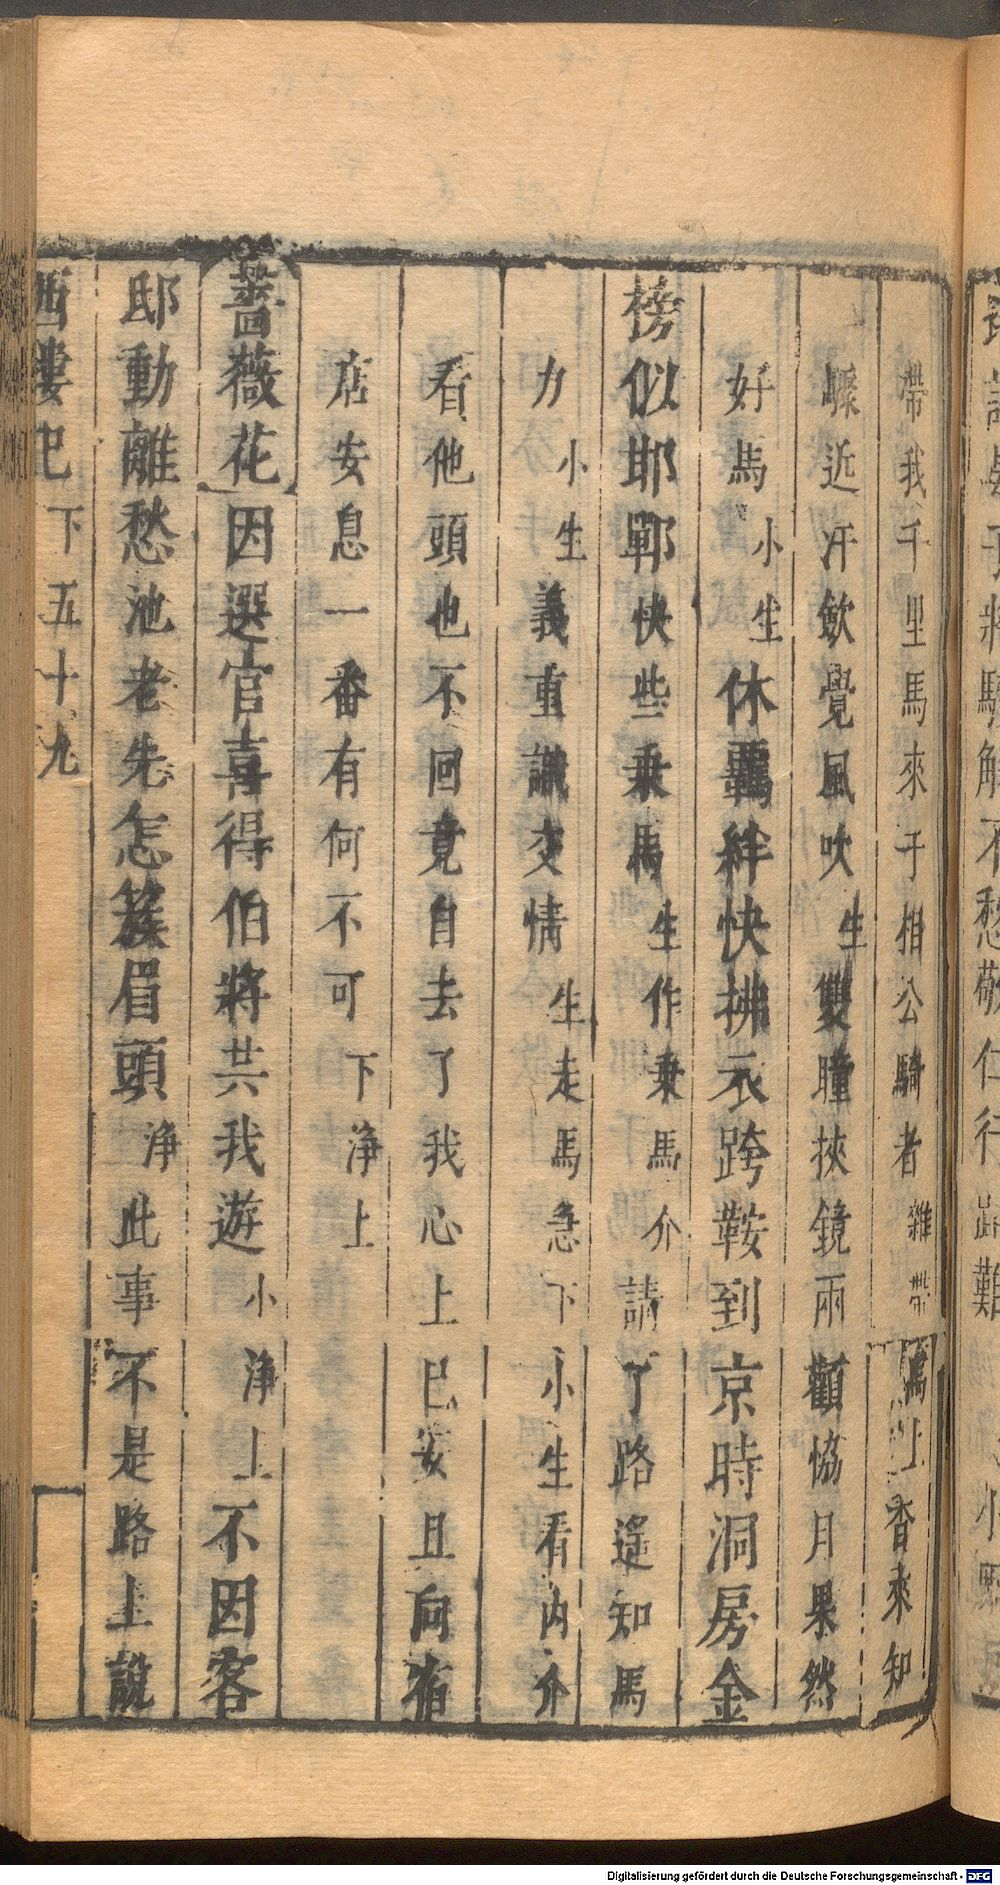 帶我千里馬來于相公騎者雜帶馬上杳來知
驟近汗飲覺風吹生雙瞳挾鏡兩顴協月果然
好馬小生休羈絆快拂衣跨鞍到京時洞房金
榜似邯鄲快些乗馬生作乗馬介請了路遙知馬
力小生義重識交情生走馬急下小生看内介
看他頭也不回竟自去了我心上已安且向宿
店安息一番有何不可下淨上
薔薇花因選官喜得伯將共我遊小淨上不因客
邸動離愁池老先怎簇眉頭淨此事不是路上說
西樓記下五十九
Digitalisierung gefördert durch die Deutsche Forschungsgemeinschaft - DFG